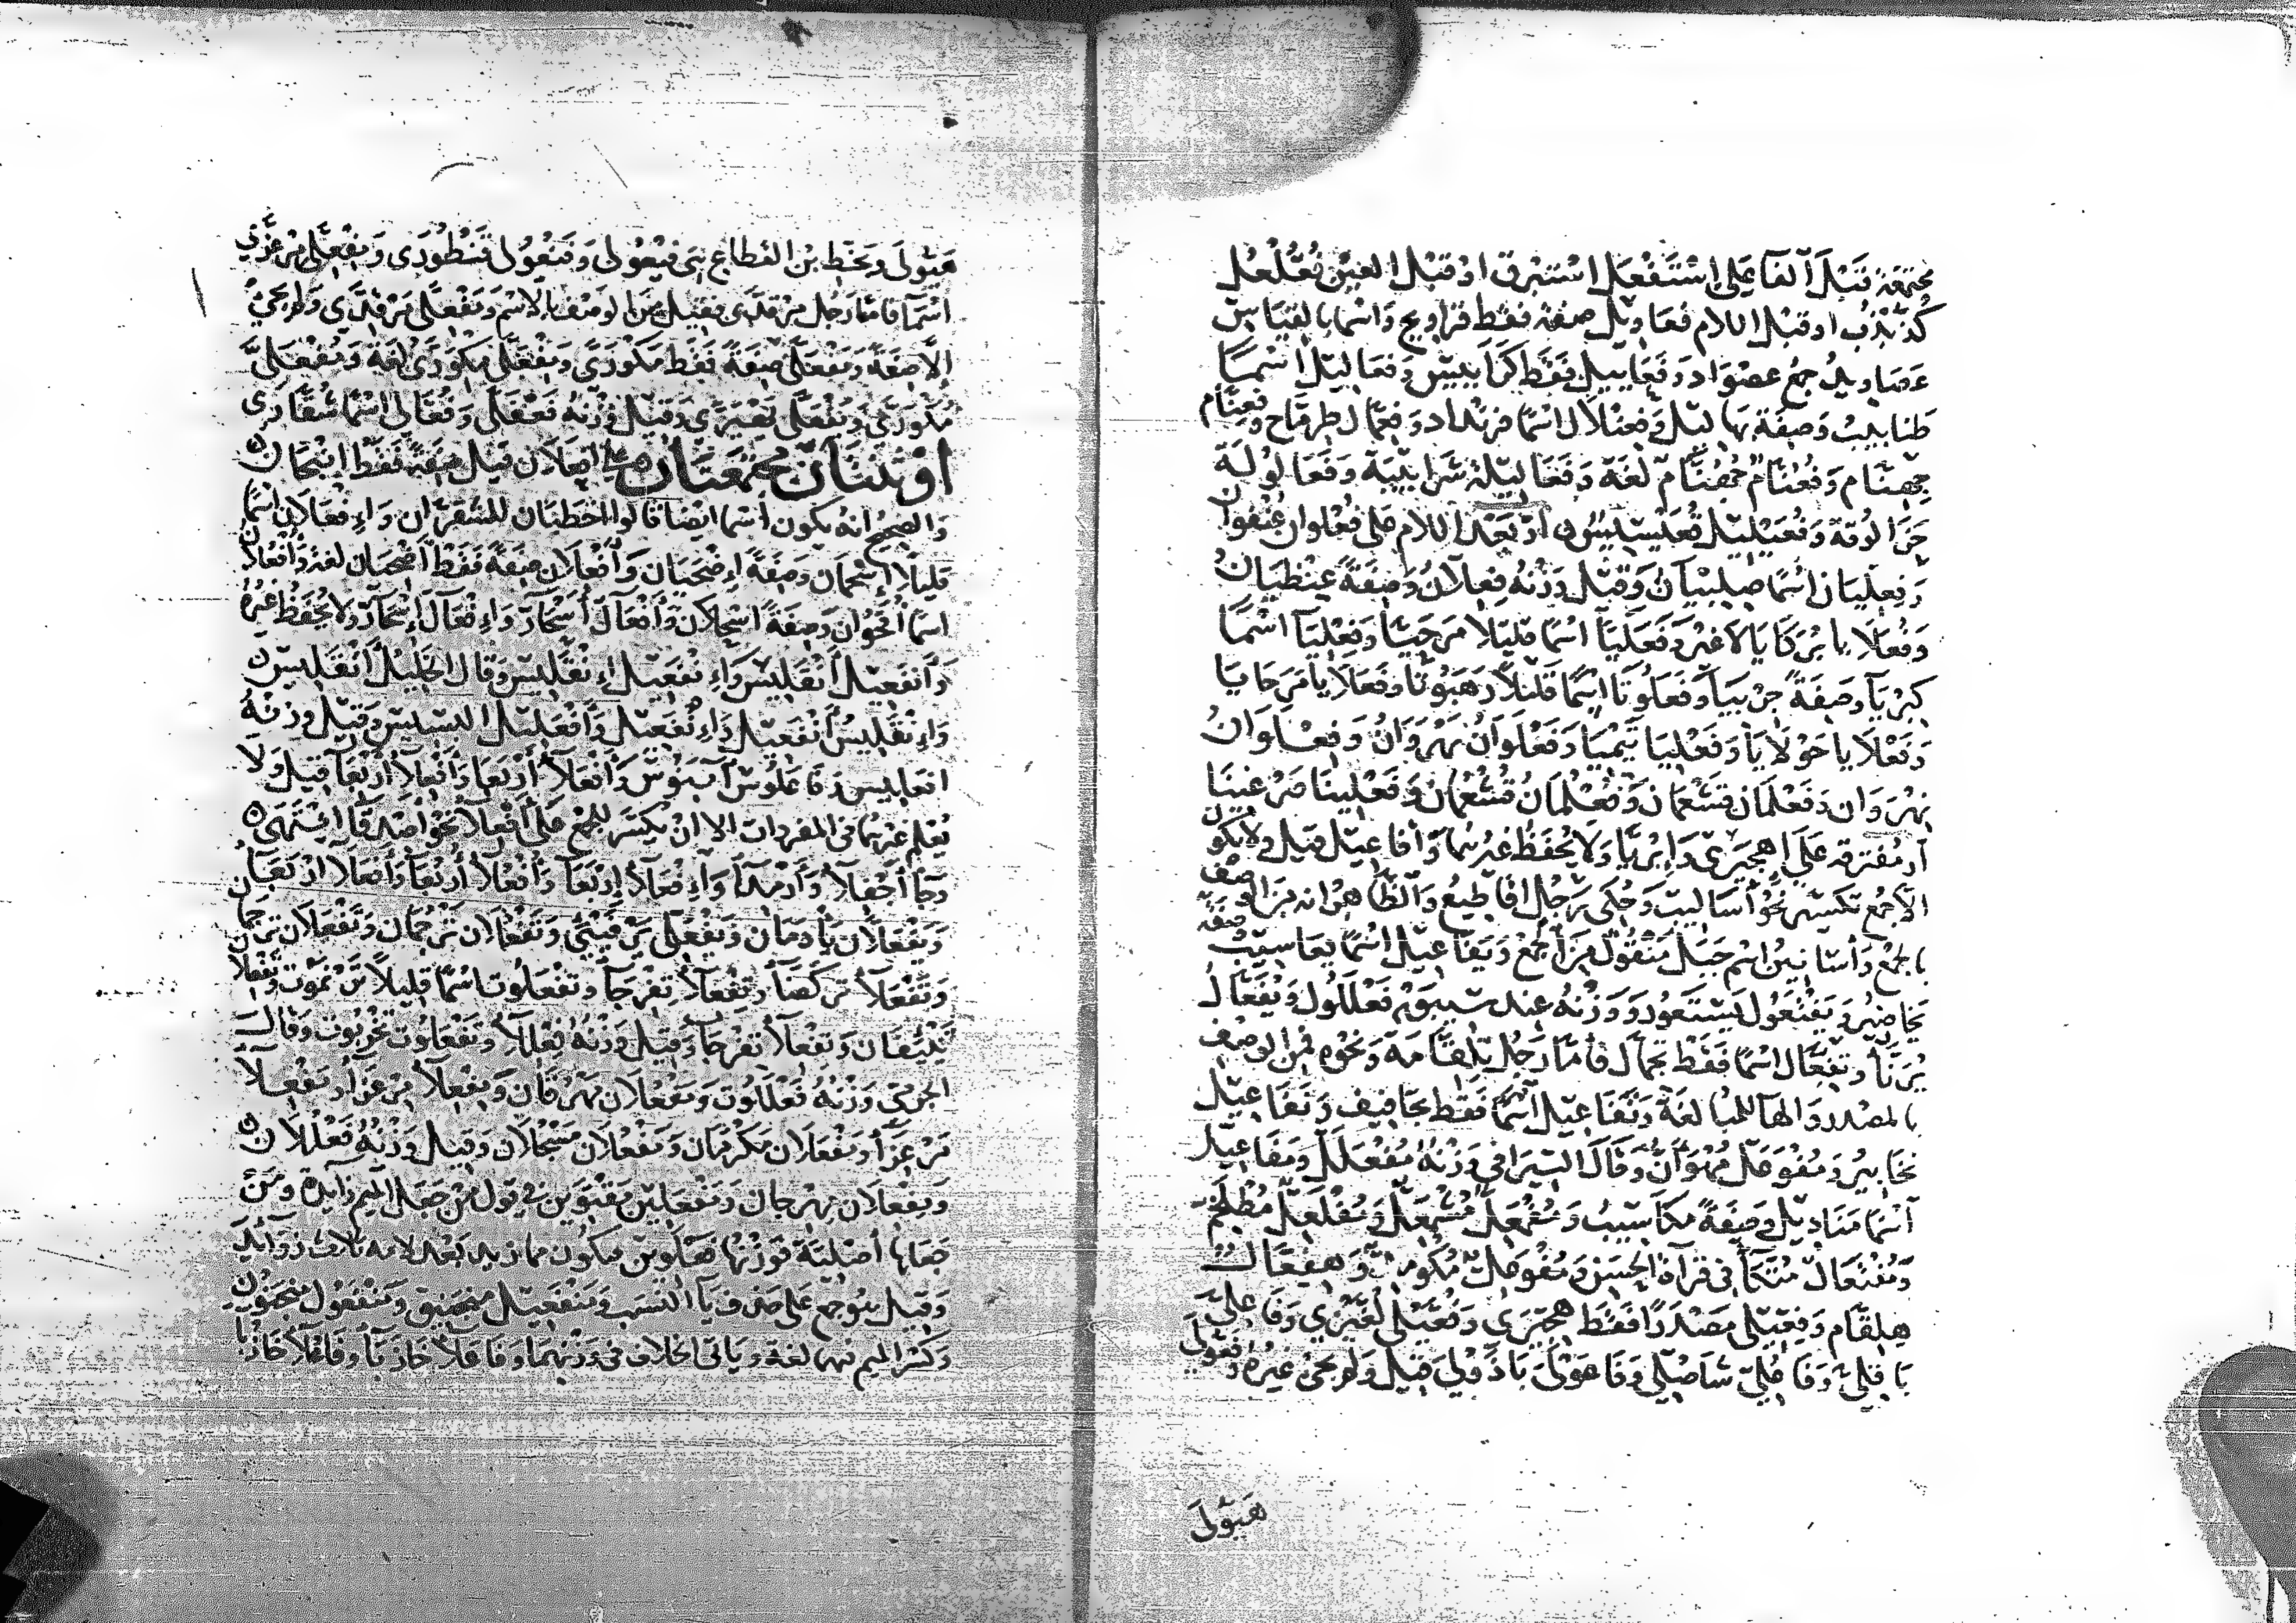 مجتمعة قبل الفا على استفعل استبرق او قبل العين فعلعل
كذبذب او قبل اللام فعاويل صفة فقط قراويح واسما بالقياس
عصاويد جمع عصواد وفعاييل فقط كراييس وفعاليل اسما
طنابيب وصفة بهاليل وفعنلال اسما فرنداد وفعال طرماح وفعنام
جهنام وفعنام جهنام لغة وفعاليلة شرابيبة وفعالولة
حزالوقة وفعيليل او بعد اللام على فعلوان عنفوان
وفعليان اسما صليان وقيل وزنه فعلان وصفة عنظيان
وفعلايا بركايا لا غير وفعليا اسما قليلا مرحيا وفعليا اسما
كبريا وصفة جربيا وفعلوتا اسما قليلا رهبوتا وفعلايا مرحايا
وفعلايا حولايا وفعليا تيميا وفعلوان نهروان وفعلوان
نهروان وفعلمان قشعمان وفعلمان قشعمان وفعلينا مرغينا
او مفترقة على اهجيرى واجريا ولا يحفظ غيرهما وافاعيل قيل ولا يكون
الا جمع تكسير نحو اساليب وحكى رجل اقاطيع والظاهر انه من الوصف
بالجمع واسانين اسم جبل منقول من الجمع ويفاعيل اسما يعاسيب وصفة
يخاضير ويفتعول يستعور ووزنه عند سيبويه فعللول ويفعال
يرنا وتفعال اسما فقط تجمال فاما رجل تلقامة ونحوه فمن الوصف
بالمصدر والها للمبالغة وتفاعيل اسما فقط تجافيف ونفاعيل
نخابير ومفوعل مهوان وقال السيرافي وزنه مفعلل ومفاعيل
اسما مناديل وصفة مكاسيب ومفمعل مشمعل ومفلعل مطلخم
ومفتعال متكأ في قراة الحسن ومفوعل مكوهد وهفعال
هلقام وفعيلى مصدرا فقط هجيرى وفعيلى لغيزى وفاعلى
باقلى وفاعلى شاصلى وفاعولى بادولى قيل ولم يجئ غيره وفعولى
هيولى
هيولى وبخط بن القطاع فيعولى وفنعولى قنطورى ومفعلى مرعزى
اسما فاما رجل مرقدى فقيل من الوصف بالاسم ومفعلى مرقدى ولم يجئ
الا صفة ومفعلى صفة فقط مكورى ومفعلى مكورى لغة ومفعلى
مكورى ويفعلى يهيرى وقيل وزنه فعفلى وفعالى اسما شقارى
او ثنتان مجتمعتان على افعلان قيل صفة فقط انبجان
والصحيح انه يكون اسما ايضا قالوا اخطبان للشقران وافعلان اسما
قليلا اسحمان وصفة اضحيان وافعلان صفة فقط اضحيان لغة وافعلان
اسما اقحوان وصفة اسحلان وافعال اسحار وافعال اسحار ولا يحفظ غيره
وانفعيل انقليس وانفعيل انقليس وقال الخليل انقليس
وانقليس انفعيل وانفعيل وافعليل وقيل وزنه
افعاليس وفاعلوس آبنوس وافعلا اربعا وافعلا اربعا قيل ولا
يعلم غيرهما في المفردات الا ان يكسر للجمع على افعلا نحو اصدقا انتهى
وجا اجفلا وارمدا وافعلا اربعا وافعلا اربعا وافعلا اربعا
ويفعلان يادمان ويفعلى يرفيى وتفعلان ترجمان وتفعلان ترجمان
وتفعلا تركضا وتفعلا تفرجا وتفعلوت اسما قليلا ترنموت وتفعلان
تئيفان وتفعلا تفرجا وقيل وزنه فعللا وتفعلوت تخربوت وقال
الجرمي وزنه فعللوت ومفعلان مهرقان ومفعلا مرعزا ومفعلا
مرعزا ومفعلان مكرمان ومفعلان مسحلان وقيل وزنه فعللان
ومفعلان مهرجان ومفعلين مقتوين في قول من جعل الميم زايدة ومن
جعلها اصلية فوزنها فعلوين فيكون مما زيد بعد لامه ثلاث زوائد
وقيل هو جمع على حذف يا النسب ومنفعيل منجنيق ومنفعول منجنون
وكسر الميم فيهما لغة وياتي الخلاف في وزنهما وفاعلا خازبا وفاعلا خازبا